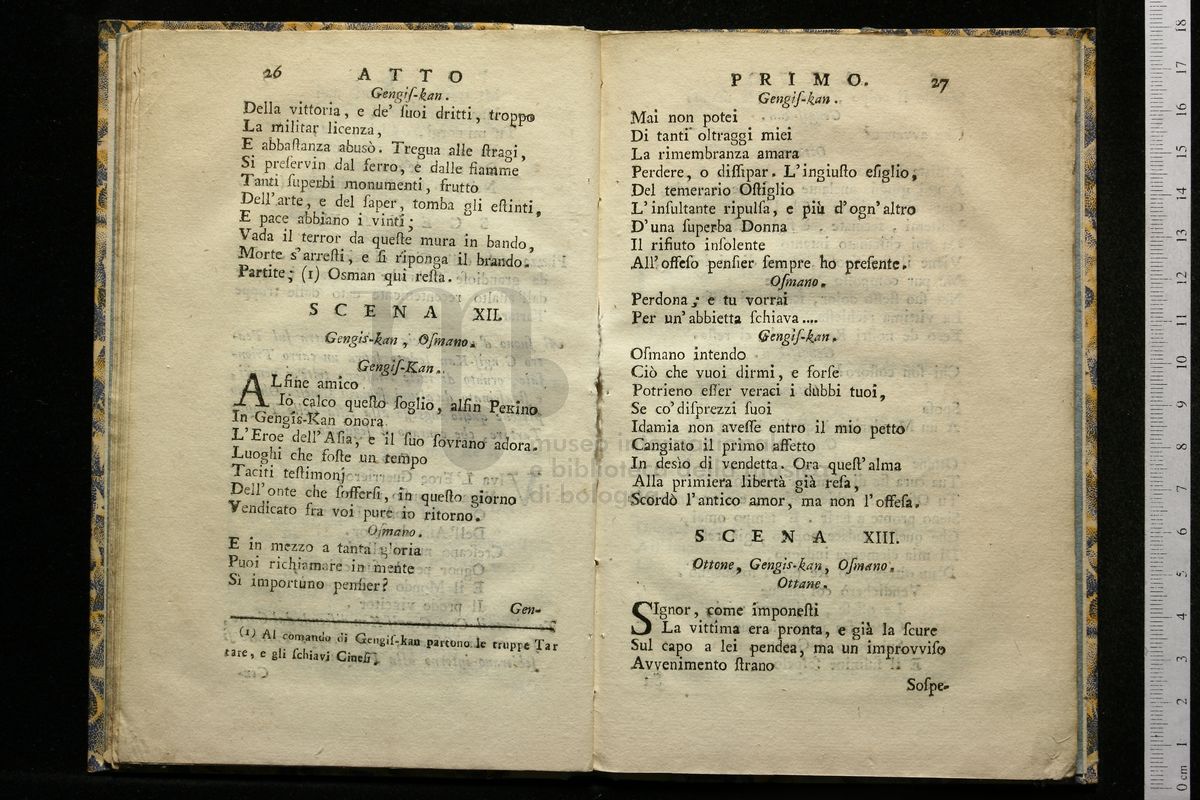 26 ATTO
Gengiſ-kan.
Della vittoria, e de' ſuoi dritti, troppo
La militar licenza,
E abbaſtanza abusò. Tregua alle ſtragi,
Si preſervin dal ferro, e dalle fiamme
Tanti ſuperbi monumenti, frutto
Dell'arte, e del ſaper, tomba gli eſtinti,
E pace abbiano i vinti;
Vada il terror da queſte mura in bando,
Morte s'arreſti, e ſi riponga il brando.
Partite; (1) Osman qui reſta.
SCENA XII.
Gengis-kan, Oſmano.
Gengiſ-Kan.
ALfine amico
Io calco queſto ſoglio, alfin Pekino
In Gengis-Kan onora
L'Eroe dell'Aſia, e il ſuo ſovrano adora.
Luoghi che foſte un tempo
Taciti teſtimonj
Dell'onte che ſofferſi, in queſto giorno
Vendicato fra voi pure io ritorno.
Oſmano.
E in mezzo a tanta gloria
Puoi richiamare in mente
Sì importuno penſier?
Gen-
(1) Al comando di Gengiſ-kan partono le truppe Tar
tare, e gli ſchiavi Cineſi.
PRIMO. 27
Gengiſ-kan.
Mai non potei
Di tanti oltraggi miei
La rimembranza amara
Perdere, o diſſipar. L'ingiuſto eſiglio,
Del temerario Oſtiglio
L'inſultante ripulſa, e più d'ogn'altro
D'una ſuperba Donna
Il rifiuto inſolente
All'offeſo penſier ſempre ho preſente.
Oſmano.
Perdona; e tu vorrai
Per un'abbietta ſchiava....
Gengiſ-kan.
Oſmano intendo
Ciò che vuoi dirmi, e forſe
Potrieno eſſer veraci i dubbi tuoi,
Se co'diſprezzi ſuoi
Idamia non aveſſe entro il mio petto
Cangiato il primo affetto
In desìo di vendetta. Ora queſt'alma
Alla primiera libertà già reſa,
Scordò l'antico amor, ma non l'offeſa.
SCENA XIII.
Ottone, Gengis-kan, Oſmano.
Ottane.
SIgnor, come imponeſti
La vittima era pronta, e già la ſcure
Sul capo a lei pendea, ma un improvviſo
Avvenimento ſtrano
Soſpe-